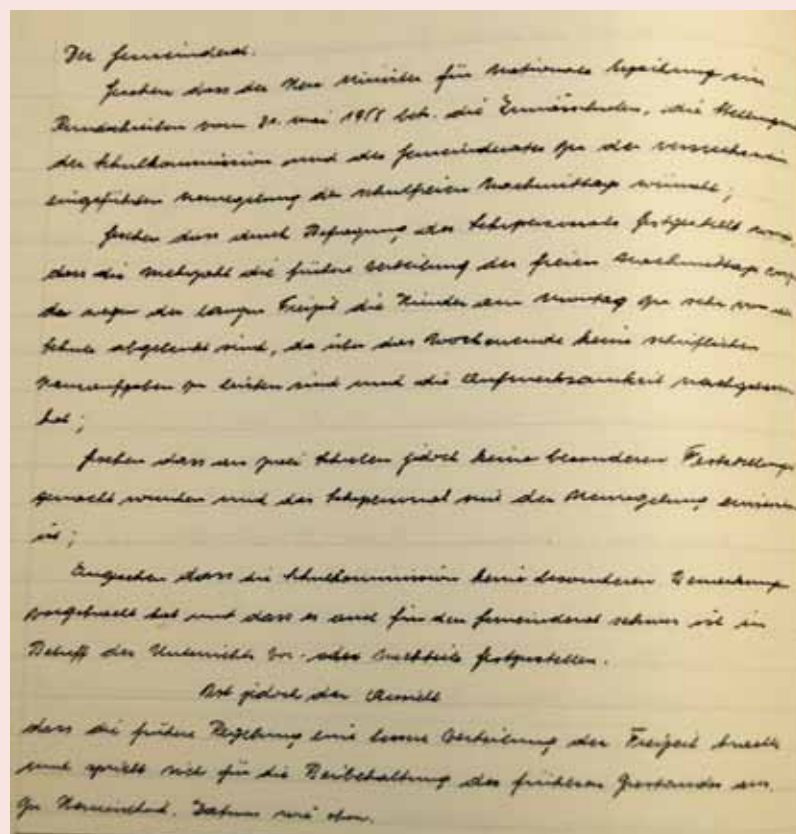 Der Gemeinderat.
Gesehen dass der Herr Minister für nationale Erziehung im
Rundschreiben vom 20. Mai 1968 betr. die Primärschulen, die Stellungnahme
der Schulkommission und des Gemeinderates zu der versuchsweise
eingeführten Neuregelung der schulfreien Nachmittage wünscht;
Gesehen dass durch Befragung des Lehrpersonals festgestellt wurde
dass die Mehrzahl die frühere Verteilung der freien Nachmittage
da wegen der langen Freizeit die Kinder am Montag zu sehr von der
Schule abgelenkt sind, da über das Wochenende keine schriftlichen
Hausaufgaben zu leisten sind und die Aufmerksamkeit nachgelassen
hat;
Gesehen dass an zwei Schulen jedoch keine besonderen Feststellungen
gemacht wurden und das Lehrpersonal mit der Neuregelung
ist;
Angesehen dass die Schulkommission keine besonderen Bemerkungen
vorgebracht hat und dass es auch für den Gemeinderat schwer ist in
Betreff des Unterrichts Vor- oder Nachteile festzustellen.
Ist jedoch der Ansicht
dass die frühere Regelung eine bessere Verteilung der Freizeit brachte
und spricht sich für die Beibehaltung des früheren Zustandes aus.
Zu Datum wie oben.